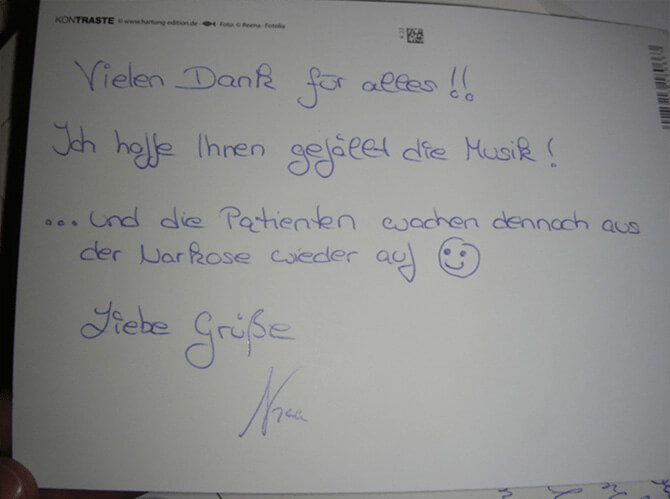 KONTRASTE © www.hartung-edition.de Foto: © Resina - Fotolia
Vielen Dank für alles!!
Ich hoffe Ihnen gefällt die Musik!
... und die Patienten wachen dennoch aus
der Narkose wieder auf
Liebe Grüße